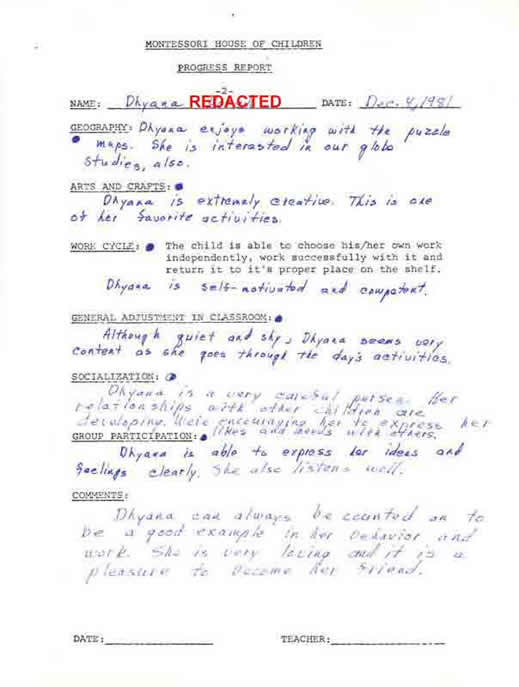 MONTESSORI HOUSE OF CHILDREN
PROGRESS REPORT
-2-
NAME: Dhyana REDACTED DATE: Dec. 4, 1981
GEOGRAPHY: Dhyana enjoys working with the puzzle
maps. She is interested in our globe
studies, also.
ARTS AND CRAFTS:
Dhyana is extremely creative. This is one
of her favorite activities.
WORK CYCLE: The child is able to choose his/her own work
independently, work successfully with it and
return it to it's proper place on the shelf.
Dhyana is self-motivated and competent.
GENERAL ADJUSTMENT IN CLASSROOM:
Although quiet and shy, Dhyana seems very
content as she goes through the day's activities.
SOCIALIZATION:
Dhyana is a very careful person. Her
relationships with other children are
developing. We're encouraging her to express her
likes and needs with others.
GROUP PARTICIPATION:
Dhyana is able to express her ideas and
feelings clearly. She also listens well.
COMMENTS:
Dhyana can always be counted on to
be a good example in her behavior and
work. She is very loving and it is a
pleasure to become her friend.
DATE: TEACHER: